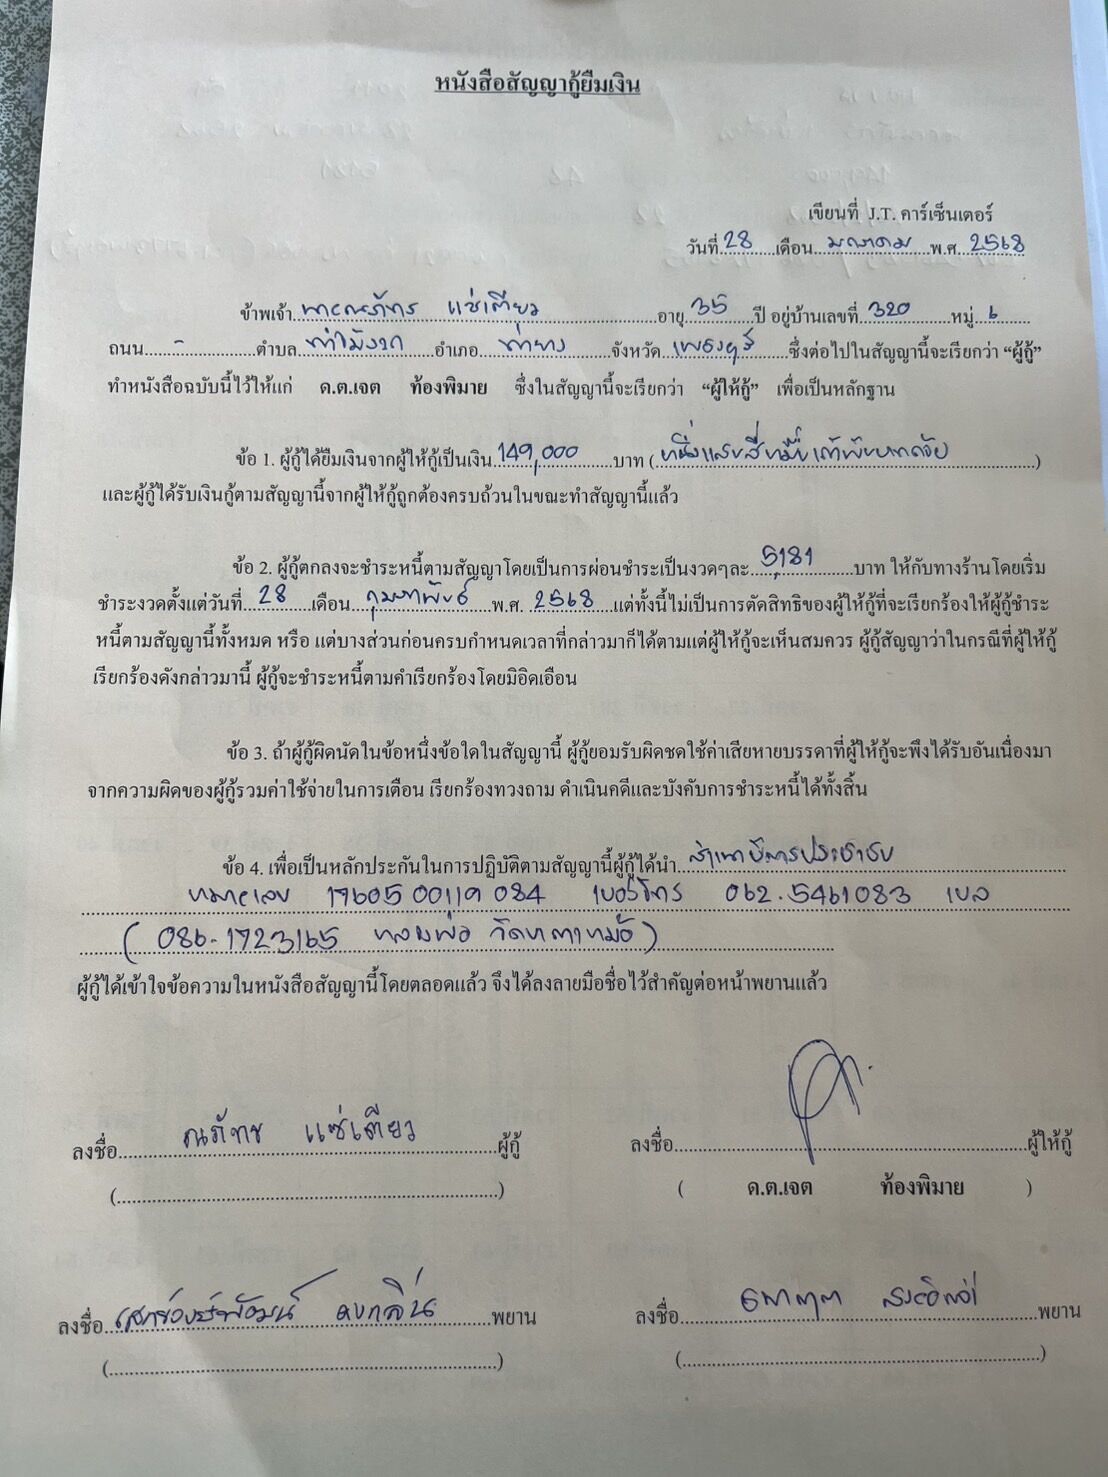 หนังสือสัญญากู้ยืมเงิน
เขียนที่ J.T. คาร์เซ็นเตอร์
วันที่ 28 เดือน มกราคม พ.ศ. 2568
ข้าพเจ้า แซ่เตียว อายุ 35 ปี อยู่บ้านเลขที่ 320 หมู่ ๖
ถนน - ตำบล ท่าไม้รวก อำเภอ ท่ายาง จังหวัด เพชรบุรี ซึ่งต่อไปในสัญญานี้จะเรียกว่า “ผู้กู้”
ทำหนังสือฉบับนี้ไว้ให้แก่ ด.ต.เจต ท้องพิมาย ซึ่งในสัญญานี้จะเรียกว่า “ผู้ให้กู้” เพื่อเป็นหลักฐาน
ข้อ 1. ผู้กู้ได้ยืมเงินจากผู้ให้กู้เป็นเงิน 149,000 บาท (หนึ่งแสนสี่หมื่นเก้าพันบาทถ้วน)
และผู้กู้ได้รับเงินกู้ตามสัญญานี้จากผู้ให้กู้ถูกต้องครบถ้วนในขณะทำสัญญานี้แล้ว
ข้อ 2. ผู้กู้ตกลงจะชำระหนี้ตามสัญญาโดยเป็นการผ่อนชำระเป็นงวดๆละ 5,181 บาท ให้กับทางร้านโดยเริ่ม
ชำระงวดตั้งแต่วันที่ 28 เดือน กุมภาพันธ์ พ.ศ. 2568 แต่ทั้งนี้ไม่เป็นการตัดสิทธิของผู้ให้กู้ที่จะเรียกร้องให้ผู้กู้ชำระ
หนี้ตามสัญญานี้ทั้งหมด หรือ แต่บางส่วนก่อนครบกำหนดเวลาที่กล่าวมาก็ได้ตามแต่ผู้ให้กู้จะเห็นสมควร ผู้กู้สัญญาว่าในกรณีที่ผู้ให้กู้
เรียกร้องดังกล่าวมานี้ ผู้กู้จะชำระหนี้ตามคำเรียกร้องโดยมิอิดเอือน
ข้อ 3. ถ้าผู้กู้ผิดนัดในข้อหนึ่งข้อใดในสัญญานี้ ผู้กู้ยอมรับผิดชดใช้ค่าเสียหายบรรดาที่ผู้ให้กู้จะพึงได้รับอันเนื่องมา
จากความผิดของผู้กู้รวมค่าใช้จ่ายในการเตือน เรียกร้องทวงถาม ดำเนินคดีและบังคับการชำระหนี้ได้ทั้งสิ้น
ข้อ 4. เพื่อเป็นหลักประกันในการปฏิบัติตามสัญญานี้ผู้กู้ได้นำ สำเนาบัตรประชาชน
หมายเลข 1760500119084 เบอร์โทร 062-5461083 เบล
(086-1723165 หลวงพ่อ)
ผู้กู้ได้เข้าใจข้อความในหนังสือสัญญานี้โดยตลอดแล้ว จึงได้ลงลายมือชื่อไว้สำคัญต่อหน้าพยานแล้ว
ลงชื่อ ณภัทร แซ่เตียว ผู้กู้ ลงชื่อ ผู้ให้กู้
( ) ( ด.ต.เจต ท้องพิมาย )
ลงชื่อ พยาน ลงชื่อ พยาน
( ) ( )